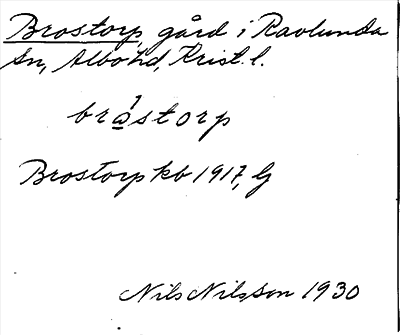 Brostorp, gård i Ravlunda
sn, Albo hd, Krist. l.
bråstorp
Brostorp kb 1917, G
Nils Nilsson 1930